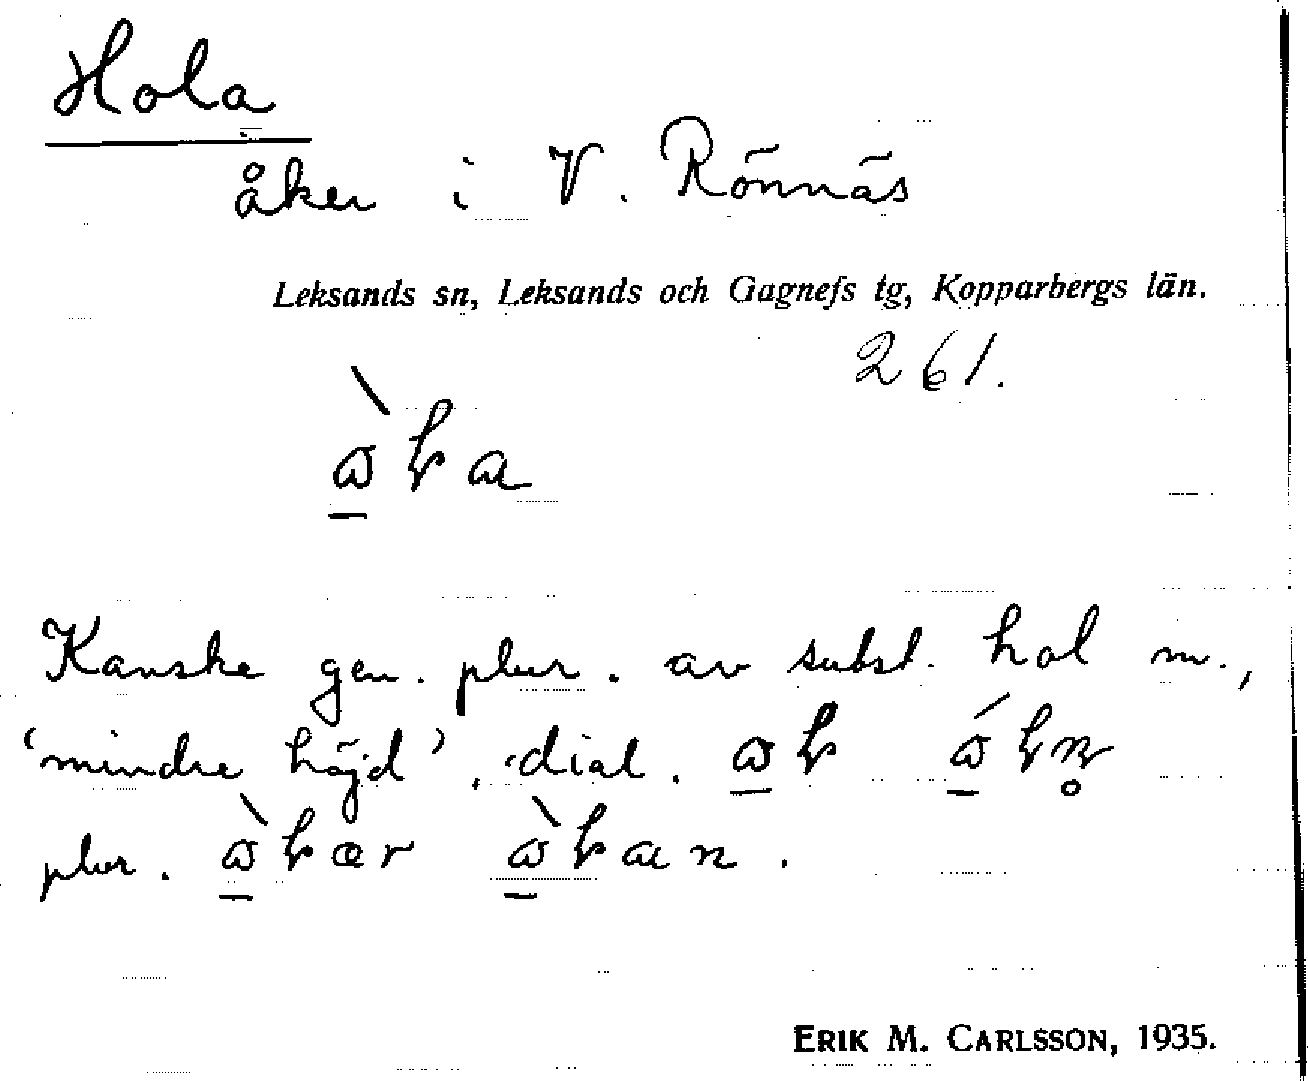 Hola
åker i V. Rönnäs
Leksands sn, Leksands och Gagnefs tg, Kopparbergs län.
261.
Kanske gen. plur. av subst. hol m.,
'mindre höjd', dial.
plur.
ERIK M. CARLSSON, 1935.